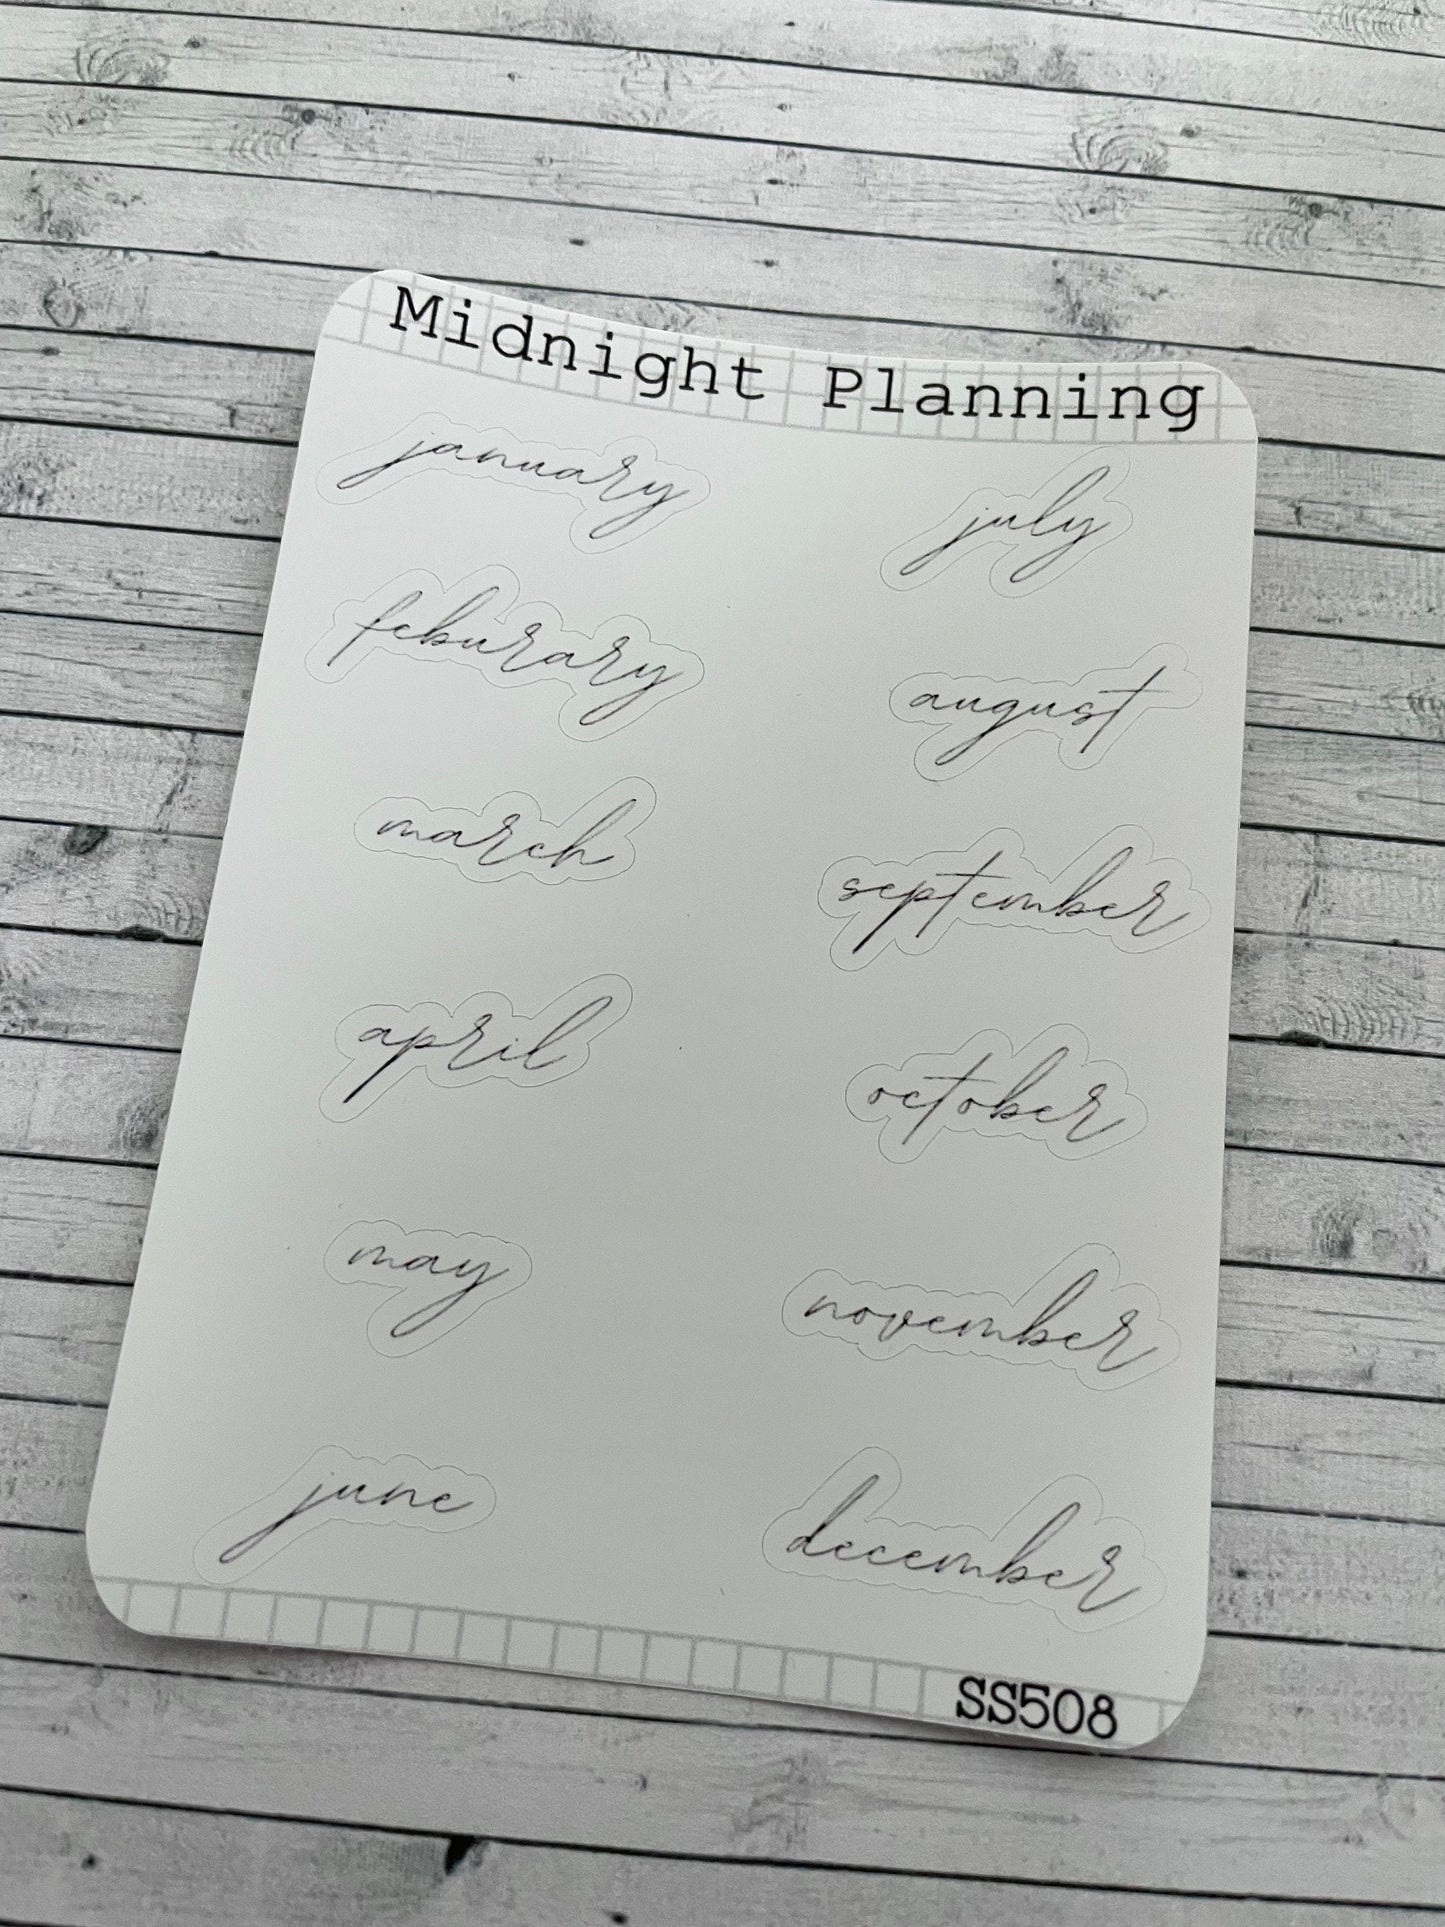 Midnight Planning
january
feburary
march
april
may
june
july
august
september
october
november
december
SS508